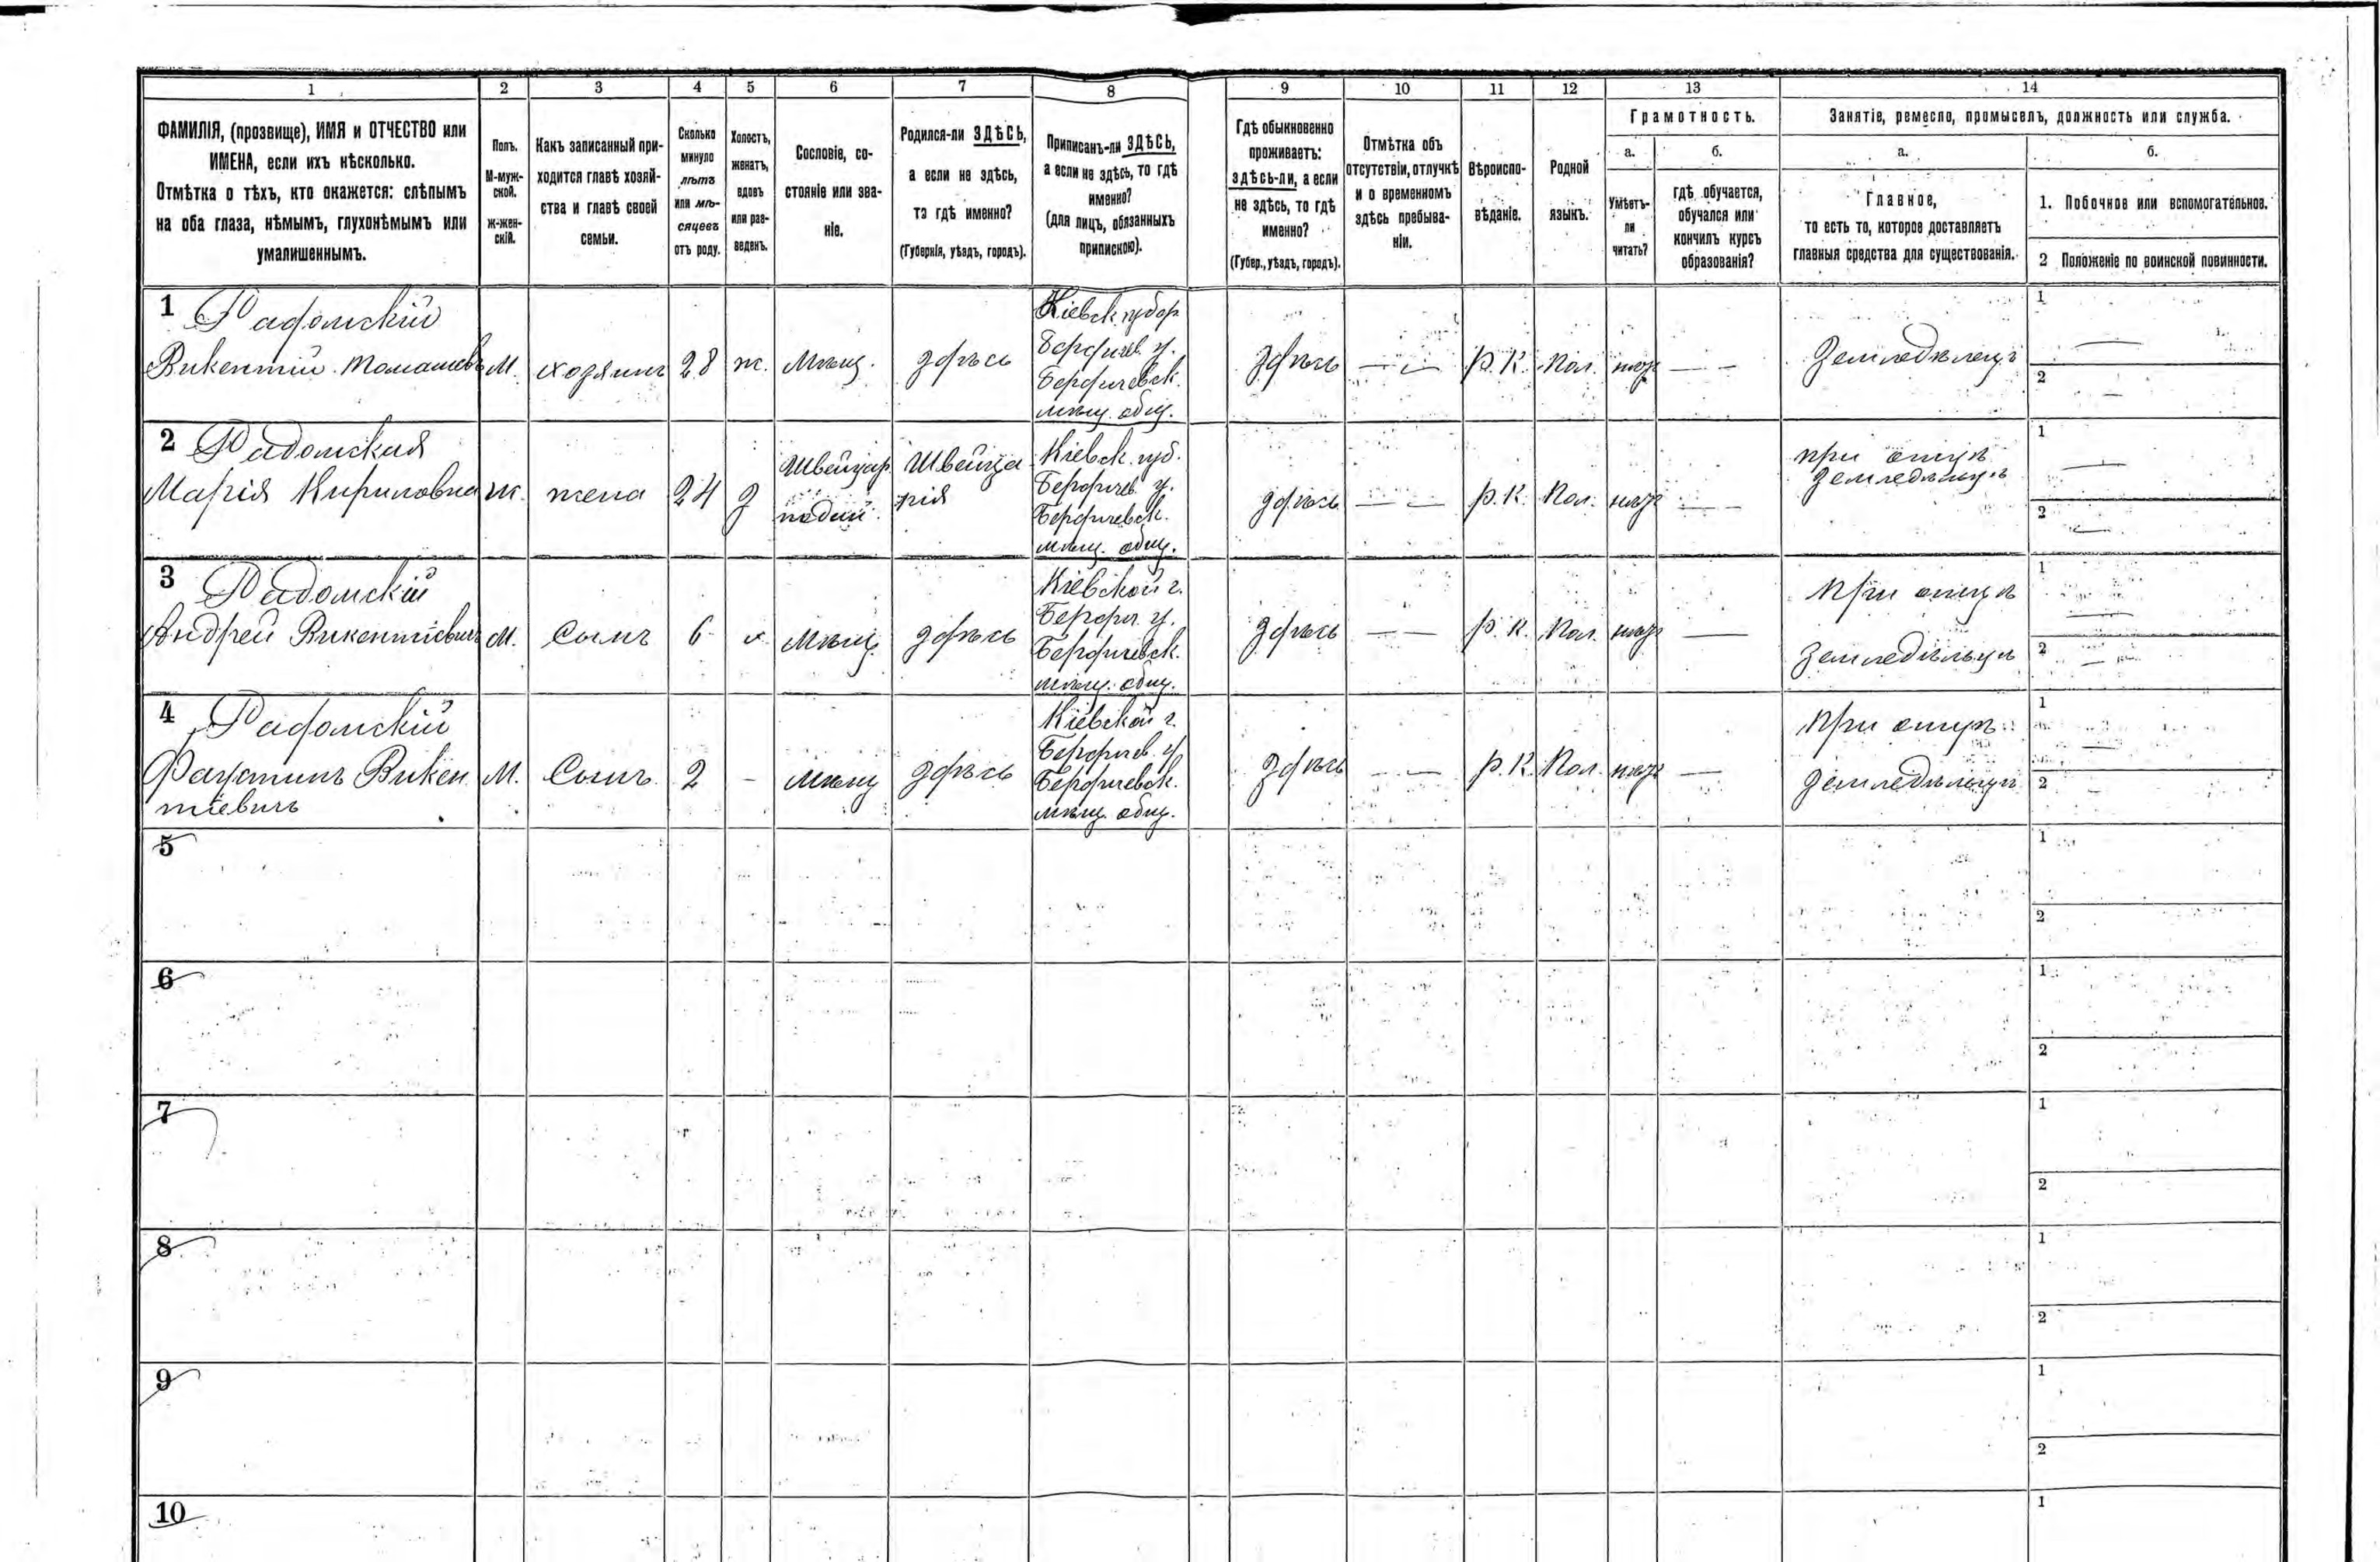 1 2 3 4 5 6 7 8 9 10 11 12 13 14
ФАМИЛІЯ, (прозвище), ИМЯ и ОТЧЕСТВО или
ИМЕНА, если ихъ нѣсколько.
Отмѣтка о тѣхъ, кто окажется: слѣпымъ
на оба глаза, нѣмымъ, глухонѣмымъ или
умалишеннымъ.
Полъ.
М-муж-
ской.
ж-жен-
скій.
Какъ записанный при-
ходится главѣ хозяй-
ства и главѣ своей
семьи.
Сколько
минуло
лѣтъ
или мѣ-
сяцевъ
отъ роду.
Холостъ,
женатъ,
вдовъ
или раз-
веденъ.
Сословіе, со-
стояніе или зва-
ніе.
Родился-ли ЗДѢСЬ,
а если не здѣсь,
то гдѣ именно?
(Губернія, уѣздъ, городъ).
Приписанъ-ли ЗДѢСЬ,
а если не здѣсь, то гдѣ
именно?
(для лицъ, обязанныхъ
припискою).
Гдѣ обыкновенно
проживаетъ:
здѣсь-ли, а если
не здѣсь, то гдѣ
именно?
(Губер., уѣздъ, городъ).
Отмѣтка объ
отсутствіи, отлучкѣ
и о временномъ
здѣсь пребыва-
ніи.
Вѣроиспо-
вѣданіе.
Родной
языкъ.
Грамотность.
а.
Умѣетъ-
ли
читать?
б.
гдѣ обучается,
обучался или
кончилъ курсъ
образованія?
Занятіе, ремесло, промыселъ, должность или служба.
а.
Главное,
то есть то, которое доставляетъ
главныя средства для существованія.
б.
1. Побочное или вспомогательное.
2 Положеніе по воинской повинности.
1 Радомскій
Викентій Томашевъ
М.
хозяинъ
28
ж.
мѣщ.
здѣсь
Кіевск губер
Бердичев. у.
Бердичевск.
мѣщ. общ.
здѣсь
— —
р. К.
Пол.
— —
Земледѣлецъ
1 —
2 —
2 Радомская
Марія Кириловна
ж.
жена
24
З
Швейцар.
подан.
Швейца
рія
Кіевск. губ.
Бердичев. у.
Бердичевск.
мѣщ. общ.
здѣсь
— —
р. К.
Пол.
— —
при отцѣ
земледѣльцѣ
1 —
2 —
3 Радомскій
Андрей Викентіевичъ
М.
Сынъ
6
х
мѣщ.
здѣсь
Кіевской г.
Бердич. у.
Бердичевск.
мѣщ. общ.
здѣсь
— —
р. К.
Пол.
—
При отцѣ
земледѣльцѣ
1 —
2 —
4 Радомскій
Викен
тіевичъ
М.
Сынъ
2
—
мѣщ
здѣсь
Кіевской г.
Бердичев. у
Бердичевск.
мѣщ. общ.
здѣсь
— —
р. К.
Пол.
—
При отцѣ
земледѣльцѣ
1 —
2 —
5
1
2
6
1
2
7
1
2
8
1
2
9
1
2
10
1